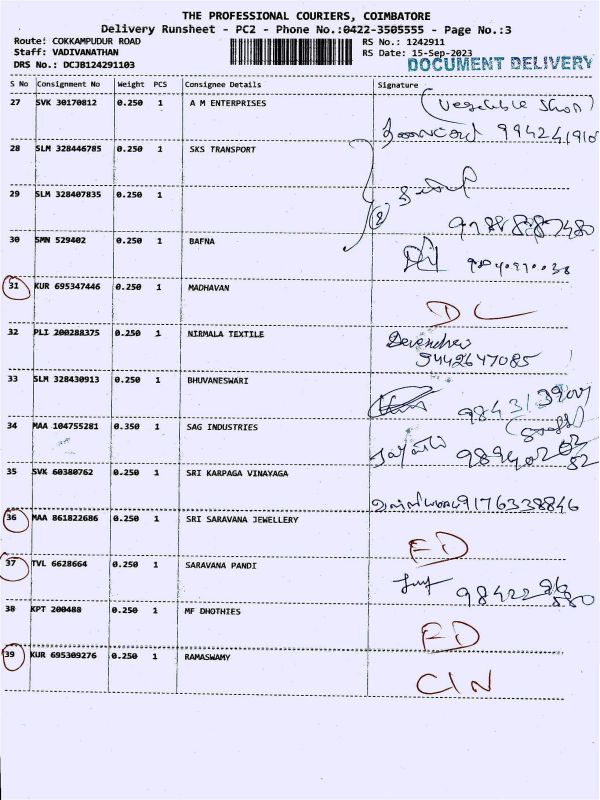 THE PROFESSIONAL COURIERS, COIMBATORE
Delivery Runsheet - PC2 - Phone No.:0422-3505555 - Page No.:3
Route: COKKAMPUDUR ROAD
Staff: VADIVANATHAN
DRS No.: DCJB124291103
RS No.: 1242911
RS Date: 15-Sep-2023
DOCUMENT DELIVERY
S No Consignment No Weight PCS Consignee Details Signature
27 SVK 30170812 0.250 1 A M ENTERPRISES (Vegetable Shop) 994241910
28 SLM 328446785 0.250 1 SKS TRANSPORT
29 SLM 328407835 0.250 1
30 SMN 529402 0.250 1 BAFNA
31 KUR 695347446 0.250 1 MADHAVAN DL
32 PLI 200288375 0.250 1 NIRMALA TEXTILE Devendren
9442647085
33 SLM 328430913 0.250 1 BHUVANESWARI
34 MAA 104755281 0.350 1 SAG INDUSTRIES
35 SVK 60380762 0.250 1 SRI KARPAGA VINAYAGA 9176338846
36 MAA 861822686 0.250 1 SRI SARAVANA JEWELLERY ED
37 TVL 6628664 0.250 1 SARAVANA PANDI
38 KPT 200488 0.250 1 MF DHOTHIES ED
39 KUR 695309276 0.250 1 RAMASWAMY CIN